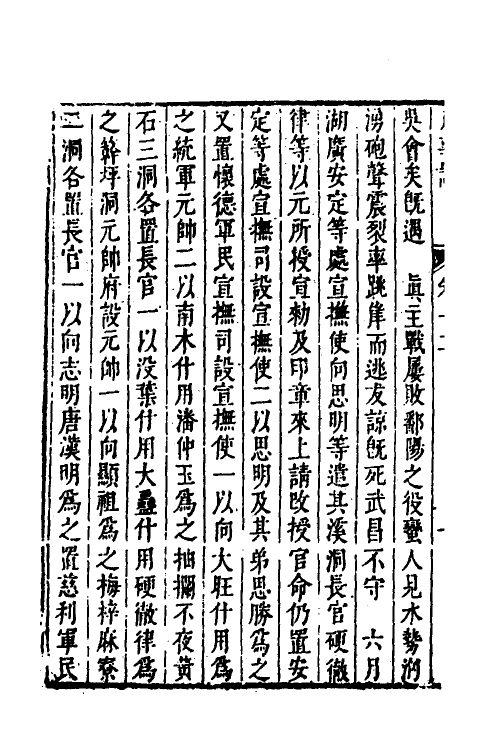 吳會矣旣遇　眞主戰屢敗鄱陽之役蠻人見水勢洶
湧砲聲震裂率跳隼而逃友諒旣死武昌不守　六月
湖廣安定等處宣撫使向思明等遣其溪洞長官硬徹
律等以元所授宣勑及印章來上請改授官命仍置安
定等處宣撫司設宣撫使二以思明及其弟思勝爲之
又置懷德軍民宣撫司設宣撫使一以向大旺什用爲
之統軍元帥二以南木什用潘仲玉爲之抽攔不夜黃
石三洞各置長官一以没葉什用大蟲什用硬徹律爲
之簳坪洞元帥府設元帥一以向顯祖爲之梅梓麻寮
二洞各置長官一以向志明唐漢明爲之置慈利軍民